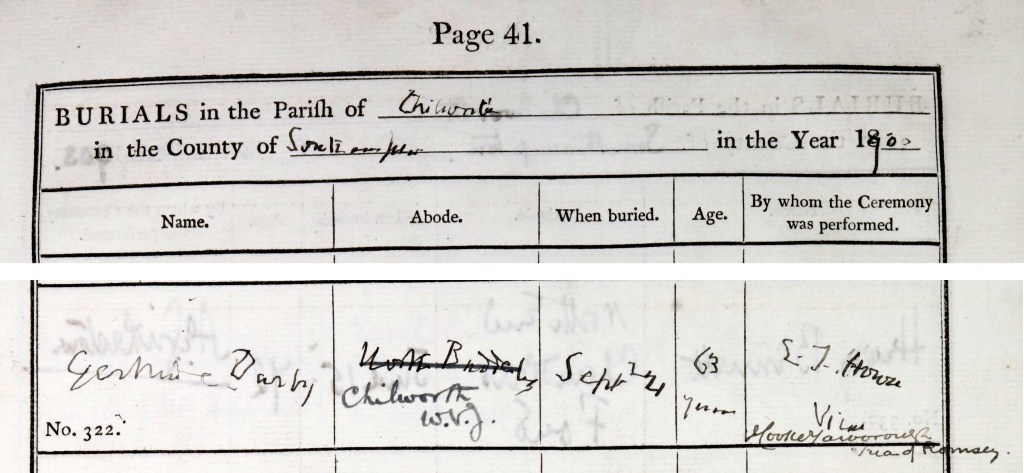 Page 41.
BURIALS in the Pariſh of Chilworth
in the County of Southampton in the Year 1900
Name. Abode. When buried. Age. By whom the Ceremony was performed.
Gertrude Darby
North Baddesley
Chilworth
W.V.J.
Sept 24
63
years
E. J.
Vicar
of Romsey.
No. 322.